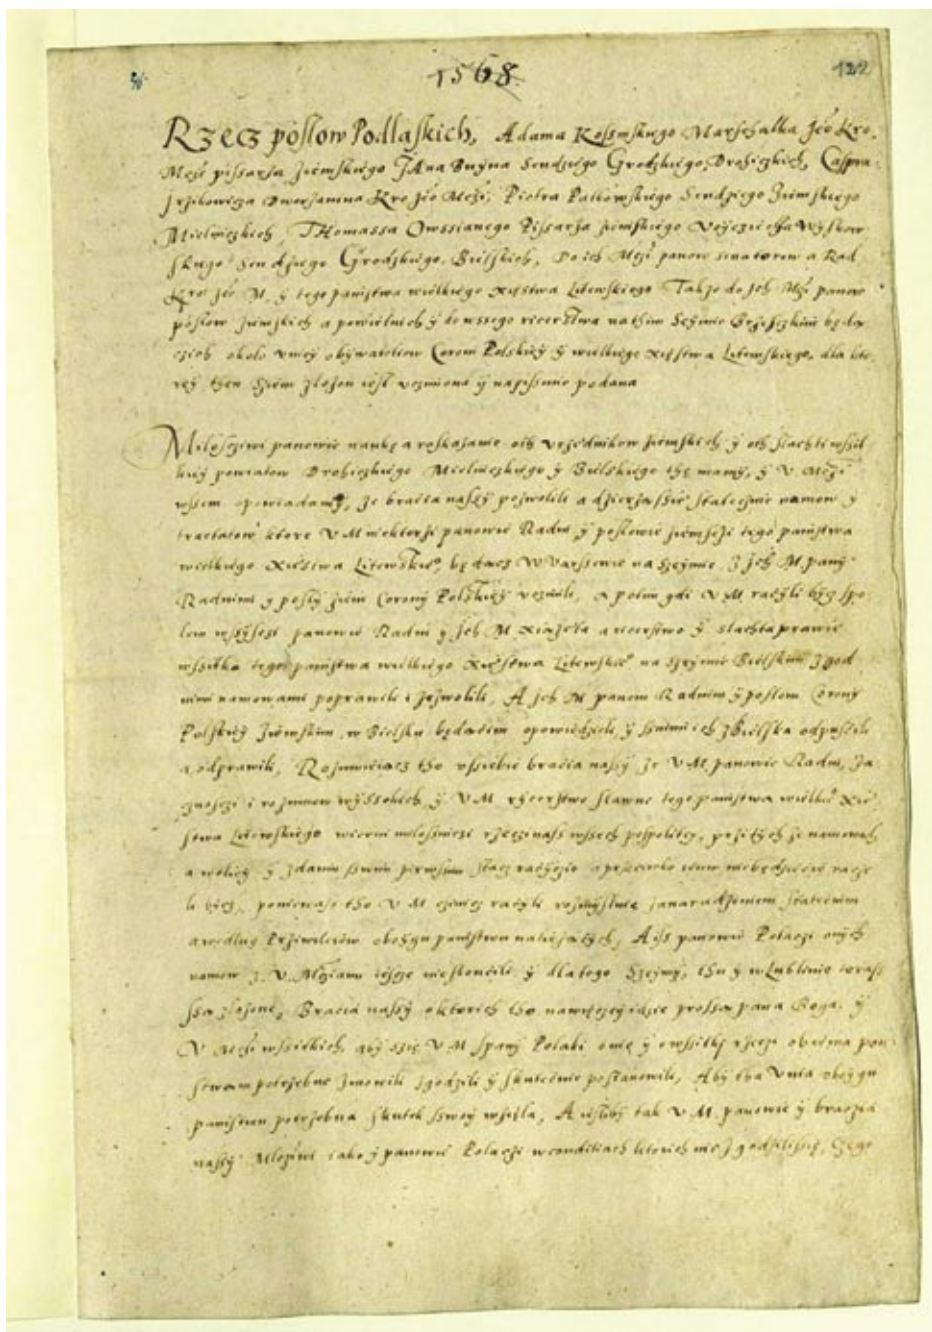 1568
122
Rzecz posłow Podlaskich, Adama Kossinskiego Marschalka Jeo Kro.
Mczi pissarza ziemskiego JAna Buyna Sendziego Grodzkiego, Drohiczkich, Caspra
Irzikowicza Dworzanina Kro Jeo Mczi, Piotra Patkowskiego Sendziego Ziemskiego
Mielniczkich, THomassa Owssianego Pissarza ziemskiego Woycziecha Wyskow
skiego Sendziego Grodzkiego, Bielskich, Do ich Mczi panow senatorow a Rad
Kro Jeo M. y tego panstwa wielkiego xięstwa Litewskiego Takze do Jch Mczi panow
posłow ziemskich a powietnich y do wssego ricerstwa na thim Seymie
około vniey obywatelow Corony Polskiey y wielkiego xięstwa Litewskiego, dla kto
rey then Siem złożon iest vczyniona y napissmie podana
Miłosciwi panowie naukę a roskazanie oth vrzednikow ziemskich y oth slachti wssit
kiey powiatow Drohiczkiego Mielniczkiego y Bielskiego thę mamy, y V Mcziom
wssem opowiadamy, ze bracia nassy pozwolili a dzierza ssie statecznie namow y
tractatow ktore V M niektorzi panowie Radni y posłowie ziemsczi tego panstwa
wielkiego Xięstwa Litewskieo, będacz W Warssewie na Seymie, z jch M pany
Radnimi y posły ziem Corony Polskiey vczinili, a potim gdi V M raczyli bycz spo
łem wssyscsi panowie Radni y jch M xiążęta a ricerstwo y slachta prawie
wssitka tego panstwa wielkiego xięstwa Litewskieo na Seymie Bielskim zgod
nimi namowami poprawili i zezwolili, A jch M panom Radnim y posłom Corony
Polskiey Ziemskim, w Bielsku będaczim opowiedzieli, y ssnimi ich z Bielska odpuscili
a odprawili, Rozumieiacz tho vssiebie bracia nassy ze V M panowie Radni, za
cznosczi i rozumow wyssokich, y V M rycerstwo sławne tego panstwa wielkieo Xię
stwa Litewskiego wierni miłosniczi rzeczi nass wssech pospolitey, przi tych ze namowach
a woliey y zdaniu sswim pirwssim stacz raczycie a przeciwko temu nie będziecie racz
li bycz, poniewasz tho V M czinicz raczyli rosmyslnie zanaradzeniem statecznim
a wedlug Priwileiow oboygu panstwu należących, A iss panowie Polaczi onych
namow z V Mcziami iescze nie skonczili y dla tego Seymy, thu y w Lublinie terass
ssa złożone, Bracia nassy oktorich tho nawięczey idzie prossa pana Boga y
V Mczi wssitkich, aby ssię V M spany Polaki onię y owssitki rzeczi obiema pan
stwam potrzebne zmowili zgodzili y skutecznie postanowili, Aby tha Vnia oboygu
panstwu potrzebna skutek sswoy wzięła, A iesliby tak V M panowie y braczia
nassy Mlcziwi iako y panowie Polaczi w conditiach ktorich nie zgodzili ssię, czego